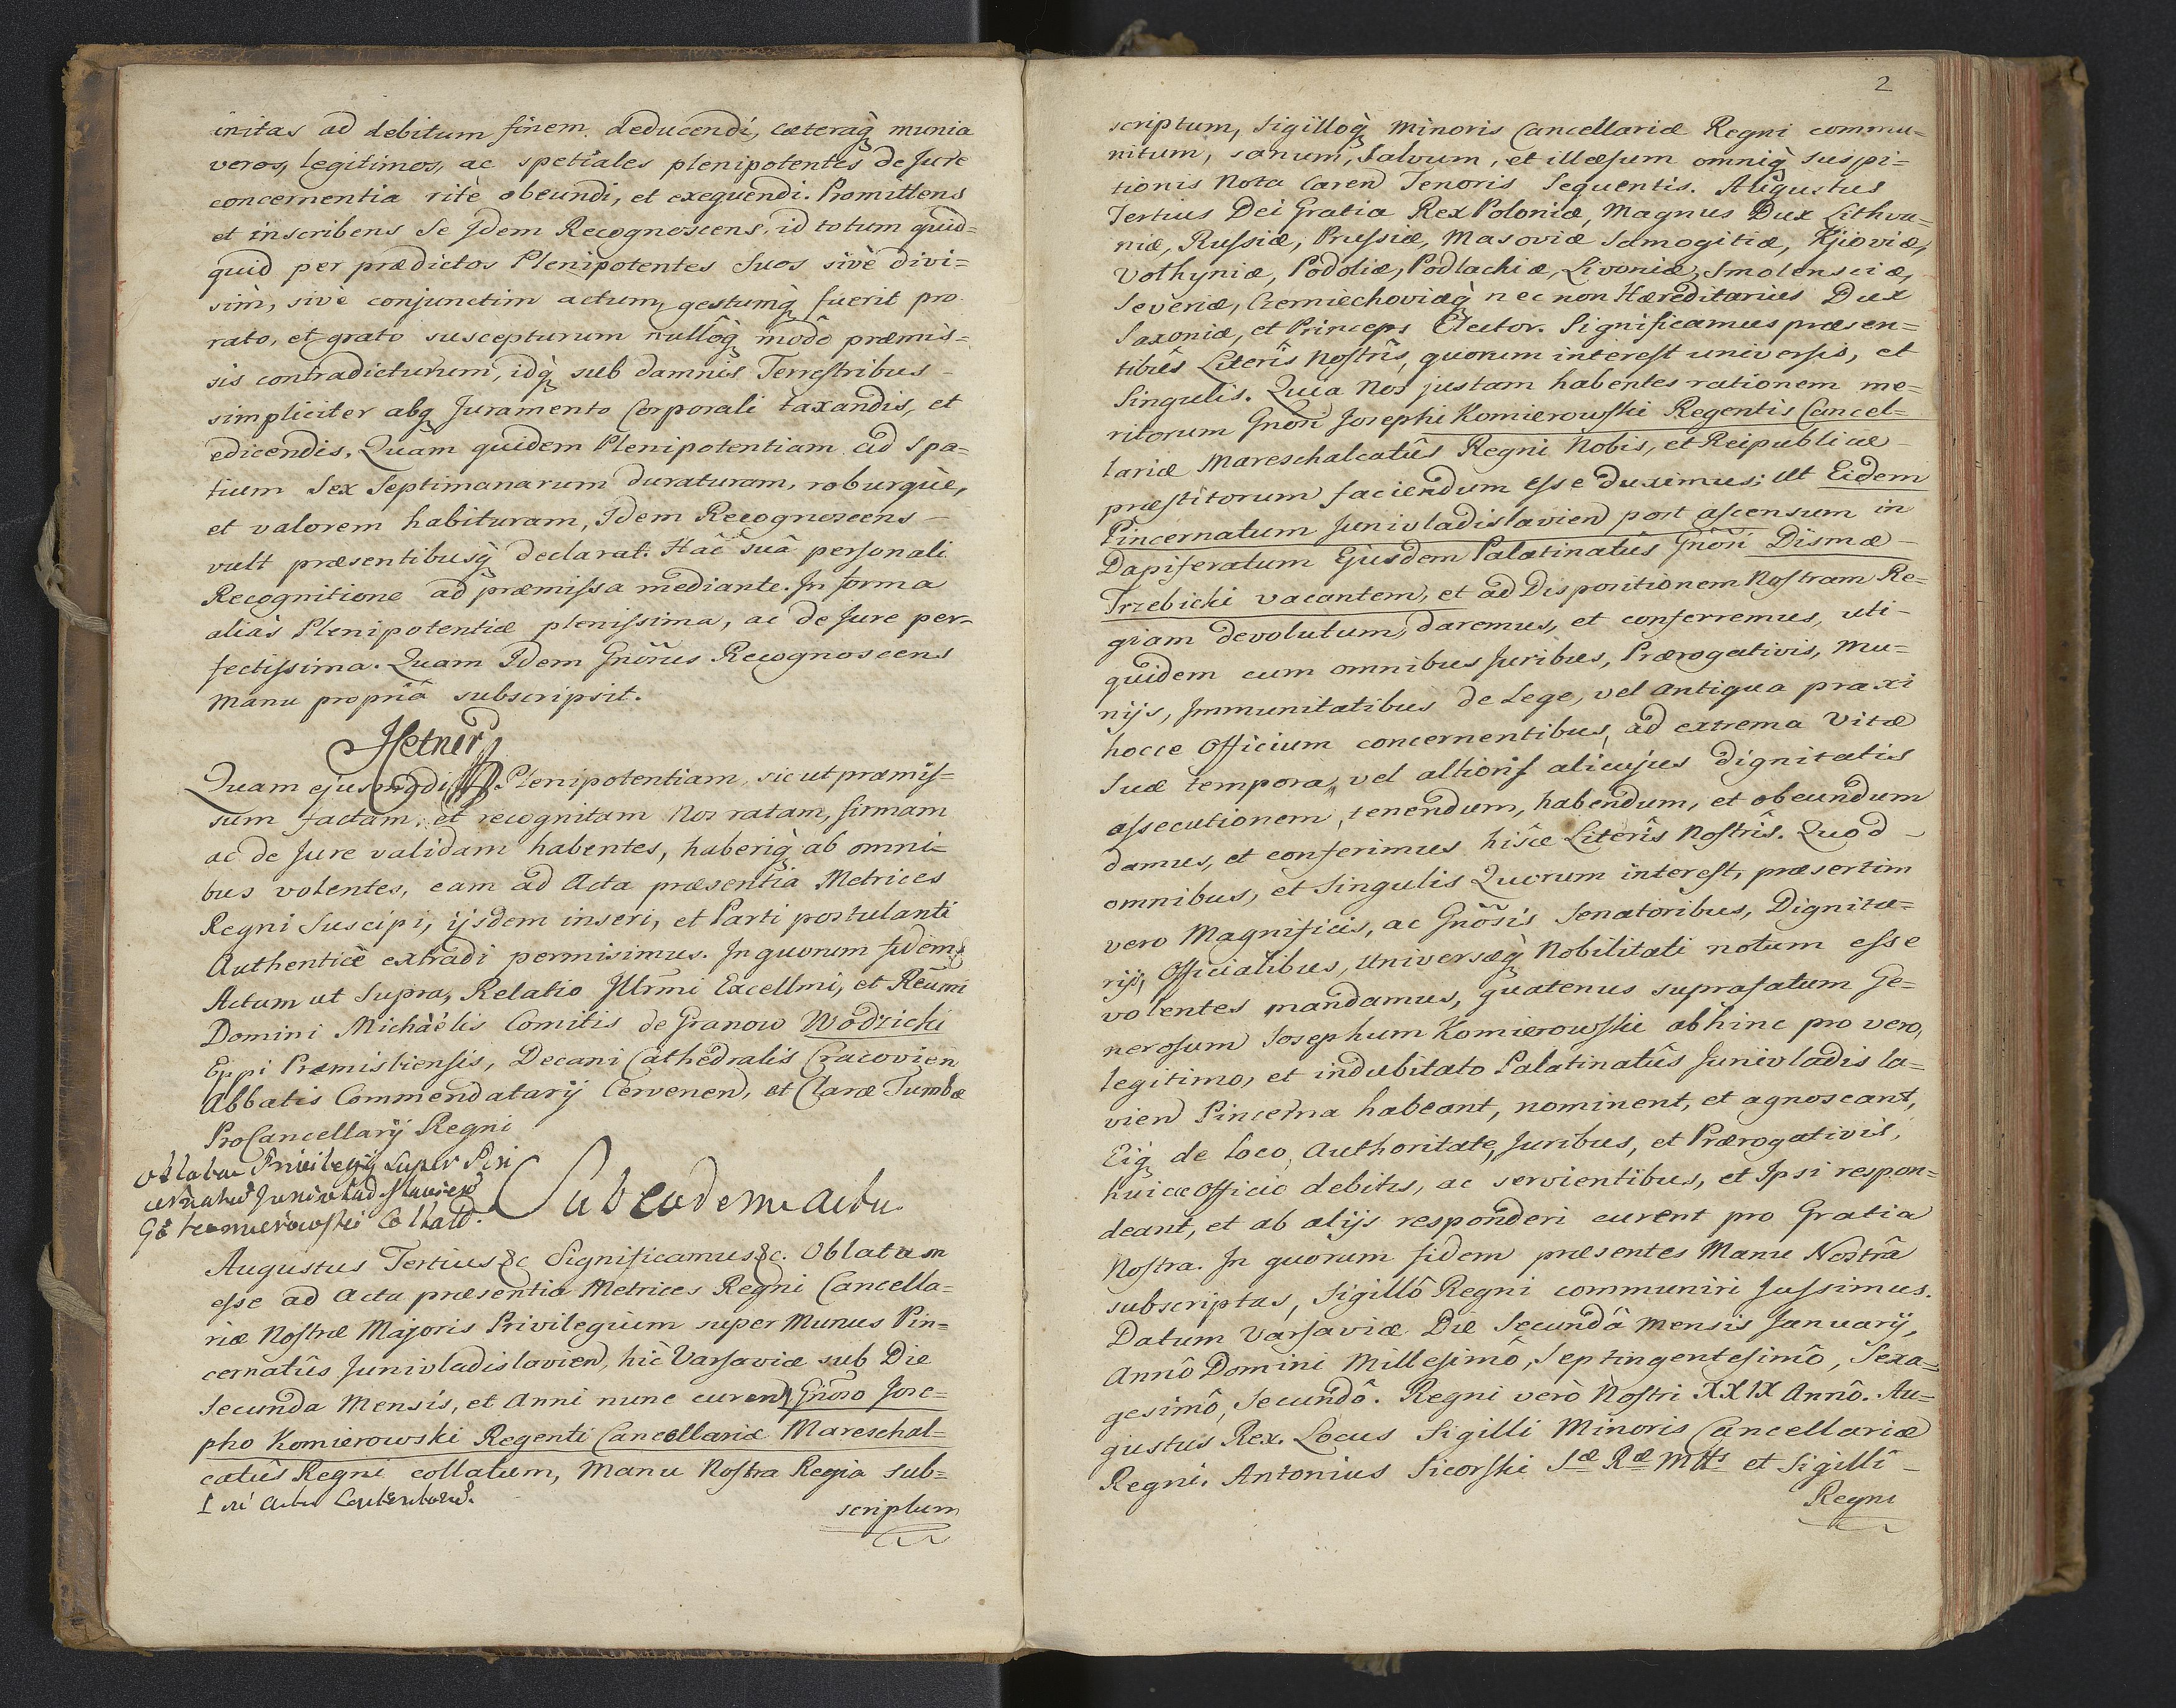 initas ad debitum finem deducendi, cæteraq̀ munia
veros, legitimos, ac spetiales plenipotentes de Jure
concernentia ritè obeundi, et exequendi. Promittens
et inscribens Se Jdem Recognoscens, id totum quid=
quid per prædictos Plenipotentes Suos sivè divi=
sim, sivè conjunctim actum, gestumq̀ fuerit pro
rato, et grato suscepturum nullôq̀ modô præmis=
sis contradicturum, idq̀ sub damnis Terrestribus
simpliciter absq̀ Juramento Corporali taxandis, et
edicendis. Quam quidem Plenipotentiam ad Spa=
tium Sex Septimanarum duraturam, roburquè,
et valorem habituram, Jdem Recognoscens
vult præsentibusq̀ declarat. Hâc suâ personali
Recognitione ad præmissa mediante. Jn forma
aliàs Plenipotentiæ plenissima, ac de Jure per=
fectissima. Quam Jdem Gnõrus Recognoscens
Manu propriâ subscripsit.
Hetner
Quam ejusmodi Plenipotentiam, sicut præmis=
sum factam, et recognitam Nos ratam, firmam
ac de Jure validam habentes, haberiq̀ ab omni=
bus volentes, eam ad Acta præsentia Metrices
Regni Suscipi, ijsdem inseri, et Parti postulanti
Authenticè extradi permisimus. Jn quorum fidem
Actum ut Supra, Relatio Jllr̃mi Excellm̃i, et Reũmi
Domini Michàélis Comitis de Granow Wodzicki
Epp̃i Præmisliensis, Decani Cathedralis Cracovien
Abbatis Commendatarij Cervenen, et Claræ Tumbæ
ProCancellarij Regni
Oblatae Privilegij Super Pin
cernatus Junivladislavien
Gõ Komierowski Collato.
Sub eodem actu
Augustus Tertius &c Significamus &c. Oblatum
esse ad Acta præsentia Metrices Regni Cancella=
riæ Nostræ Majoris Privilegium super Munus Pin=
cernatûs Junivladislavien, hic Varsaviæ sub Die
Secunda Mensis, et Anni nunc curen, Gnõso Jose=
pho Komierowski Regenti Cancellariæ Mareschal=
catûs Regni collatum, Manu Nostra Regia sub=
scriptum
2
scriptum, Sigilloq̀ Minoris Cancellariæ Regni commu=
nitum, sanum, Salvum, et illæsum omniq̀ suspi=
tionis Nota Caren Tenoris Sequentis. Augustus
Tertius Dei Gratia Rex Poloniæ, Magnus Dux Lithva=
niæ, Russiæ, Prussiæ, Masoviæ Samogitiæ, Kijoviæ,
Volhyniæ, Podoliæ, Podlachiæ, Livoniæ, Smolensciæ,
Severiæ, Czerniechoviæq̀ nec non Hæreditarius Dux
Saxoniæ, et Princeps Elector. Significamus præsen=
tibûs Literîs Nostrîs, quorum interest universis, et
Singulis. Quia Nos justam habentes rationem me=
ritorum Gnõri Josephi Komierowski Regentis Cancel=
lariæ Mareschalcatûs Regni Nobis, et Reipublicæ
præstitorum faciendum esse duximus; ut Eidem
Pincernatum Junivladislavien post ascensum in
Dapiferatum Ejusdem Palatinatûs Gnõri Dismæ
Trzebicki vacantem, et ad Dispositionem Nostram Re=
giam devolutum, daremus, et conferremus, uti=
quidem cum omnibus Juribus, Prærogativis, Mu=
nijs, Jmmunitatibus de Lege, vel antiqua praxi
hocce Officium concernentibus, ad extrema Vitæ
Suæ tempora, vel altioris alicujus dignitatis
assecutionem, tenendum, habendum, et obeundum
damus, et conferimus hisce Literîs Nostrîs. Quod
omnibus, et Singulis Quorum interest, præsertim
vero Magnificis, ac Gnõsis Senatoribus, Dignita=
rijs, Officialibus, Universæq̀ Nobilitati notum esse
volentes mandamus, quatenus suprafatum Ge=
nerosum Josephum Komierowski abhinc pro vero,
legitimo, et indubitato Palatinatûs Junivladisla=
vien Pincerna habeant, nominent, et agnoscant,
Eiq̀ de Loco, Authoritate, Juribus, et Prærogativis,
huicce Officio debitis, ac servientibus, et Jpsi respon=
deant, et ab alijs responderi curent pro Gratia
Nostra. Jn quorum fidem præsentes Manu Nostrâ
subscriptas, Sigillô Regni communiri Jussimus.
Datum Varsaviæ Die Secundâ Mensis Januarij,
Annô Domini Millesimô, Septingentesimô, Sexa=
gesimô, Secundô. Regni verò Nostri XXIX Annô. Au=
gustus Rex. Locus Sigilli Minoris Cancellariæ
Regni. Antonius Sicorski Sæ Ræ Mttis et Sigilli
Regni